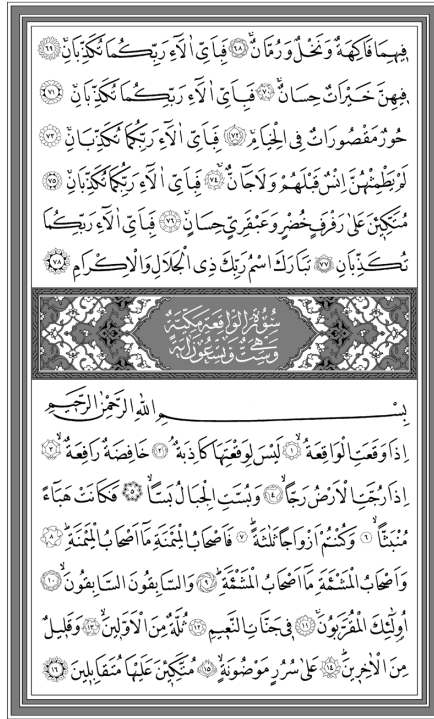 فِيهِمَا فَاكِهَةٌ وَنَخْلٌ وَرُمَّانٌۚ ﴿٦٨﴾ فَبِاَيِّ اٰلَٓاءِ رَبِّكُمَا تُكَذِّبَانِۚ ﴿٦٩﴾
فِيهِنَّ خَيْرَاتٌ حِسَانٌۚ ﴿٧٠﴾ فَبِاَيِّ اٰلَٓاءِ رَبِّكُمَا تُكَذِّبَانِۚ ﴿٧١﴾
حُورٌ مَقْصُورَاتٌ فِي الْخِيَامِۚ ﴿٧٢﴾ فَبِاَيِّ اٰلَٓاءِ رَبِّكُمَا تُكَذِّبَانِۚ ﴿٧٣﴾
لَمْ يَطْمِثْهُنَّ اِنْسٌ قَبْلَهُمْ وَلَا جَٓانٌّۚ ﴿٧٤﴾ فَبِاَيِّ اٰلَٓاءِ رَبِّكُمَا تُكَذِّبَانِۚ ﴿٧٥﴾
مُتَّكِـِٔينَ عَلٰى رَفْرَفٍ خُضْرٍ وَعَبْقَرِيٍّ حِسَانٍۚ ﴿٧٦﴾ فَبِاَيِّ اٰلَٓاءِ رَبِّكُمَا
تُكَذِّبَانِ ﴿٧٧﴾ تَبَارَكَ اسْمُ رَبِّكَ ذِي الْجَلَالِ وَالْاِكْرَامِ ﴿٧٨﴾
سُورَةُ الْوَاقِعَةِ مَكِّيَّةٌ
وَهِيَ سِتٌّ وَتِسْعُونَ اٰيَةً
بِسْمِ اللّٰهِ الرَّحْمٰنِ الرَّحِيمِ
اِذَا وَقَعَتِ الْوَاقِعَةُۙ ﴿١﴾ لَيْسَ لِوَقْعَتِهَا كَاذِبَةٌۢ ﴿٢﴾ خَافِضَةٌ رَافِعَةٌۙ ﴿٣﴾
اِذَا رُجَّتِ الْاَرْضُ رَجًّاۙ ﴿٤﴾ وَبُسَّتِ الْجِبَالُ بَسًّاۙ ﴿٥﴾ فَكَانَتْ هَبَٓاءً
مُنْبَثًّاۙ ﴿٦﴾ وَكُنْتُمْ اَزْوَاجًا ثَلٰثَةًۜ ﴿٧﴾ فَاَصْحَابُ الْمَيْمَنَةِ مَٓا اَصْحَابُ الْمَيْمَنَةِۜ ﴿٨﴾
وَاَصْحَابُ الْمَشْـَٔمَةِ مَٓا اَصْحَابُ الْمَشْـَٔمَةِۜ ﴿٩﴾ وَالسَّابِقُونَ السَّابِقُونَۙ ﴿١٠﴾
اُو۬لٰٓئِكَ الْمُقَرَّبُونَۚ ﴿١١﴾ فِي جَنَّاتِ النَّعِيمِ ﴿١٢﴾ ثُلَّةٌ مِنَ الْاَوَّلِينَۙ ﴿١٣﴾ وَقَلِيلٌ
مِنَ الْاٰخِرِينَۜ ﴿١٤﴾ عَلٰى سُرُرٍ مَوْضُونَةٍۙ ﴿١٥﴾ مُتَّكِـِٔينَ عَلَيْهَا مُتَقَابِلِينَ ﴿١٦﴾